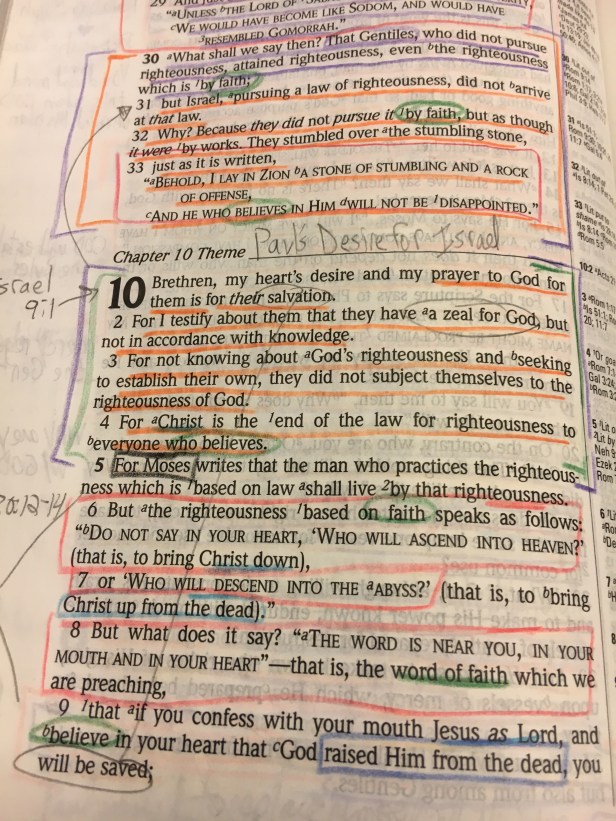 "ᵃUNLESS ᵇTHE LORD OF
ᶜWE WOULD HAVE BECOME LIKE SODOM, AND WOULD HAVE
³RESEMBLED GOMORRAH."
30 ᵃWhat shall we say then? That Gentiles, who did not pursue
righteousness, attained righteousness, even ᵇthe righteousness
which is ¹by faith;
31 but Israel, ᵃpursuing a law of righteousness, did not ᵇarrive
at that law.
32 Why? Because they did not pursue it ¹by faith, but as though
it were ¹by works. They stumbled over ᵃthe stumbling stone,
33 just as it is written,
"ᵃBEHOLD, I LAY IN ZION ᵇA STONE OF STUMBLING AND A ROCK
OF OFFENSE,
ᶜAND HE WHO BELIEVES IN HIM ᵈWILL NOT BE ¹DISAPPOINTED."
Chapter 10 Theme Paul's Desire for Israel
Israel
9:1
10 Brethren, my heart's desire and my prayer to God for
them is for their salvation.
2 For I testify about them that they have ᵃa zeal for God, but
not in accordance with knowledge.
3 For not knowing about ᵃGod's righteousness and ᵇseeking
to establish their own, they did not subject themselves to the
righteousness of God.
4 For ᵃChrist is the ¹end of the law for righteousness to
ᵇeveryone who believes.
5 For Moses writes that the man who practices the righteous-
ness which is ¹based on law ᵃshall live ²by that righteousness.
6 But ᵃthe righteousness ¹based on faith speaks as follows:
"ᵇDO NOT SAY IN YOUR HEART, 'WHO WILL ASCEND INTO HEAVEN?'
(that is, to bring Christ down),
7 or 'WHO WILL DESCEND INTO THE ᵃABYSS?' (that is, to ᵇbring
Christ up from the dead)."
8 But what does it say? "ᵃTHE WORD IS NEAR YOU, IN YOUR
MOUTH AND IN YOUR HEART"—that is, the word of faith which we
are preaching,
9 ¹that ᵃif you confess with your mouth Jesus as Lord, and
ᵇbelieve in your heart that ᶜGod raised Him from the dead, you
will be saved;